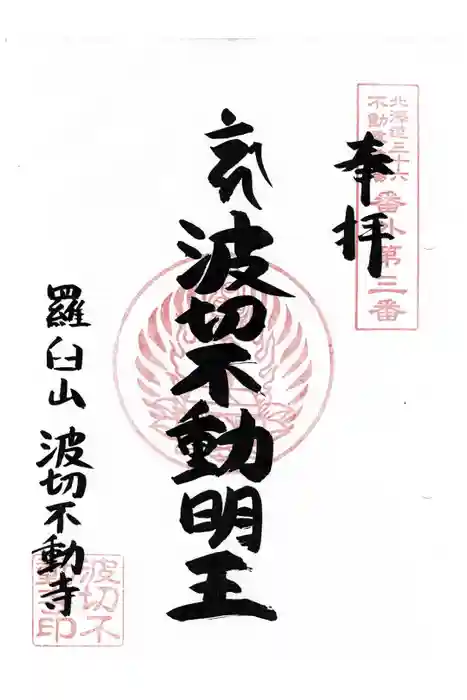 奉拝
北海道三十六
不動尊霊場
番外第三番
波切不動明王
羅臼山 波切不動寺
波切不
動印